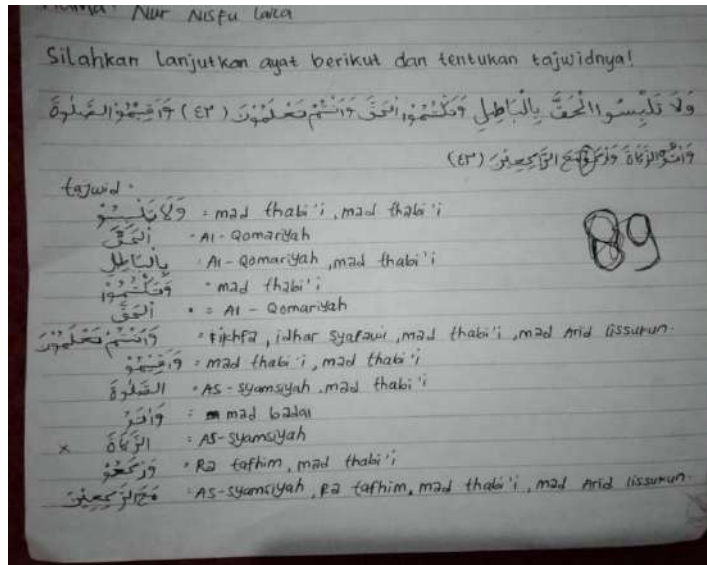 Nama: Nur Nisfu Laila
Silahkan lanjutkan ayat berikut dan tentukan tajwidnya!
وَلَا تَلْبِسُوا الْحَقَّ بِالْبَاطِلِ وَتَكْتُمُوا الْحَقَّ وَأَنْتُمْ تَعْلَمُوْنَ (٤٢) وَاَقِيْمُوا الصَّلٰوةَ
وَاٰتُوا الزَّكَاةَ وَارْكَعُوْا مَعَ الرَّاكِعِيْنَ (٤٣)
tajwid :
وَلَا تَلْبِسُوْ = mad thabi'i, mad thabi'i
89
اَلْحَقَّ = Al-Qomariyah
بِالْبَاطِلِ : Al-Qomariyah, mad thabi'i
وَتَكْتُمُوْا = mad thabi'i
اَلْحَقَّ = Al-Qomariyah
وَاَنْتُمْ تَعْلَمُوْنَ = ikhfa, idhar syafawi, mad thabi'i, mad Arid lissukun.
وَاَقِيْمُوْ = mad thabi'i, mad thabi'i
الصَّلٰوةَ = AS-syamsiyah, mad thabi'i
وَاٰتُوْ = mad badal
× الزَّكَاةَ = AS-syamsiyah
وَرْكَعُوْ = Ra tafhim, mad thabi'i
مَعَ الرّٰكِعِيْنَ = AS-syamsiyah, Ra tafhim, mad thabi'i, mad Arid lissukun.